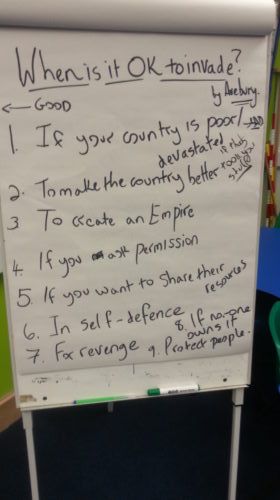 When is it OK to invade?
by Avebury.
← GOOD → BAD
1. If your country is poor/
devastated
2. To make the country better
3 To create an Empire
4 If you ask permission
5. If you want to share their
resources
6. In self-defence
7. For revenge
8. If no-one
owns it
9. Protect people.